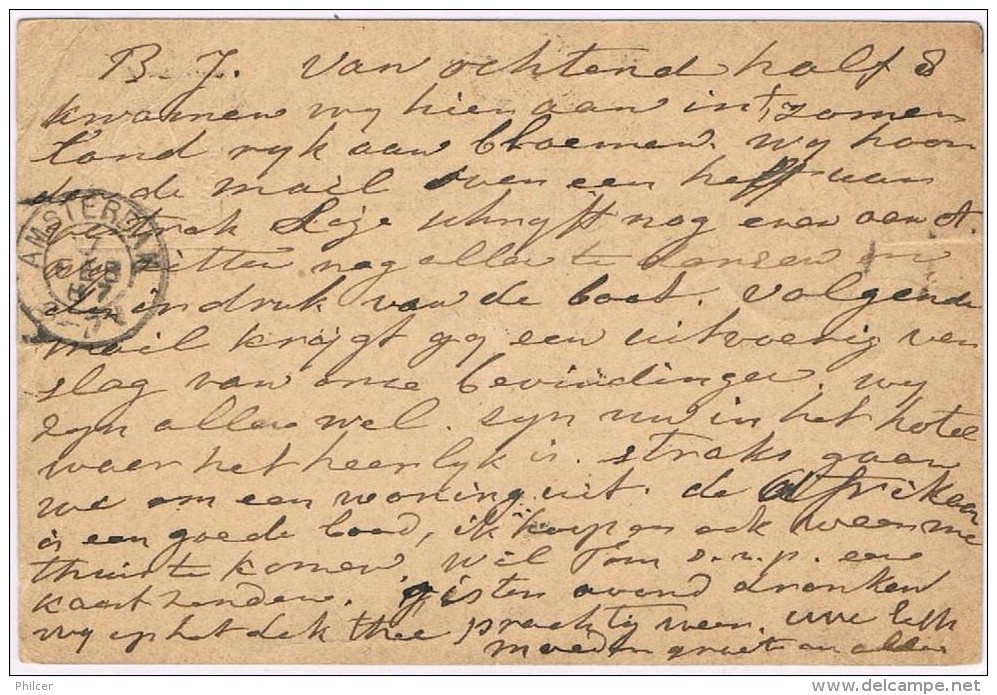 B. J. van ochtend half 8
kwamen wy hier aan in 't zomer
land ryk aan bloemen. wy hoor
den de mail over een half uur
Lize schryft nog even aan A.
wy zitten nog allen te
den indruk van de boot. volgende
mail krijgt gy een uitvoerig ver
slag van onze bevindingen. wy
zyn allen wel. zyn nu in het hotel
waar het heerlyk is. straks gaan
we om een woning uit. de Afrikaan
is een goede boot, ik hoop er ook weer me
thuis te komen. wil Tom s.v.p. een
kaart zenden. gisteren avond dronken
wy op het dek thee prachtig weer. uwe
moeder groete aan allen
AMSTERDAM
7
FEB
87
Philcer
delcampe.net